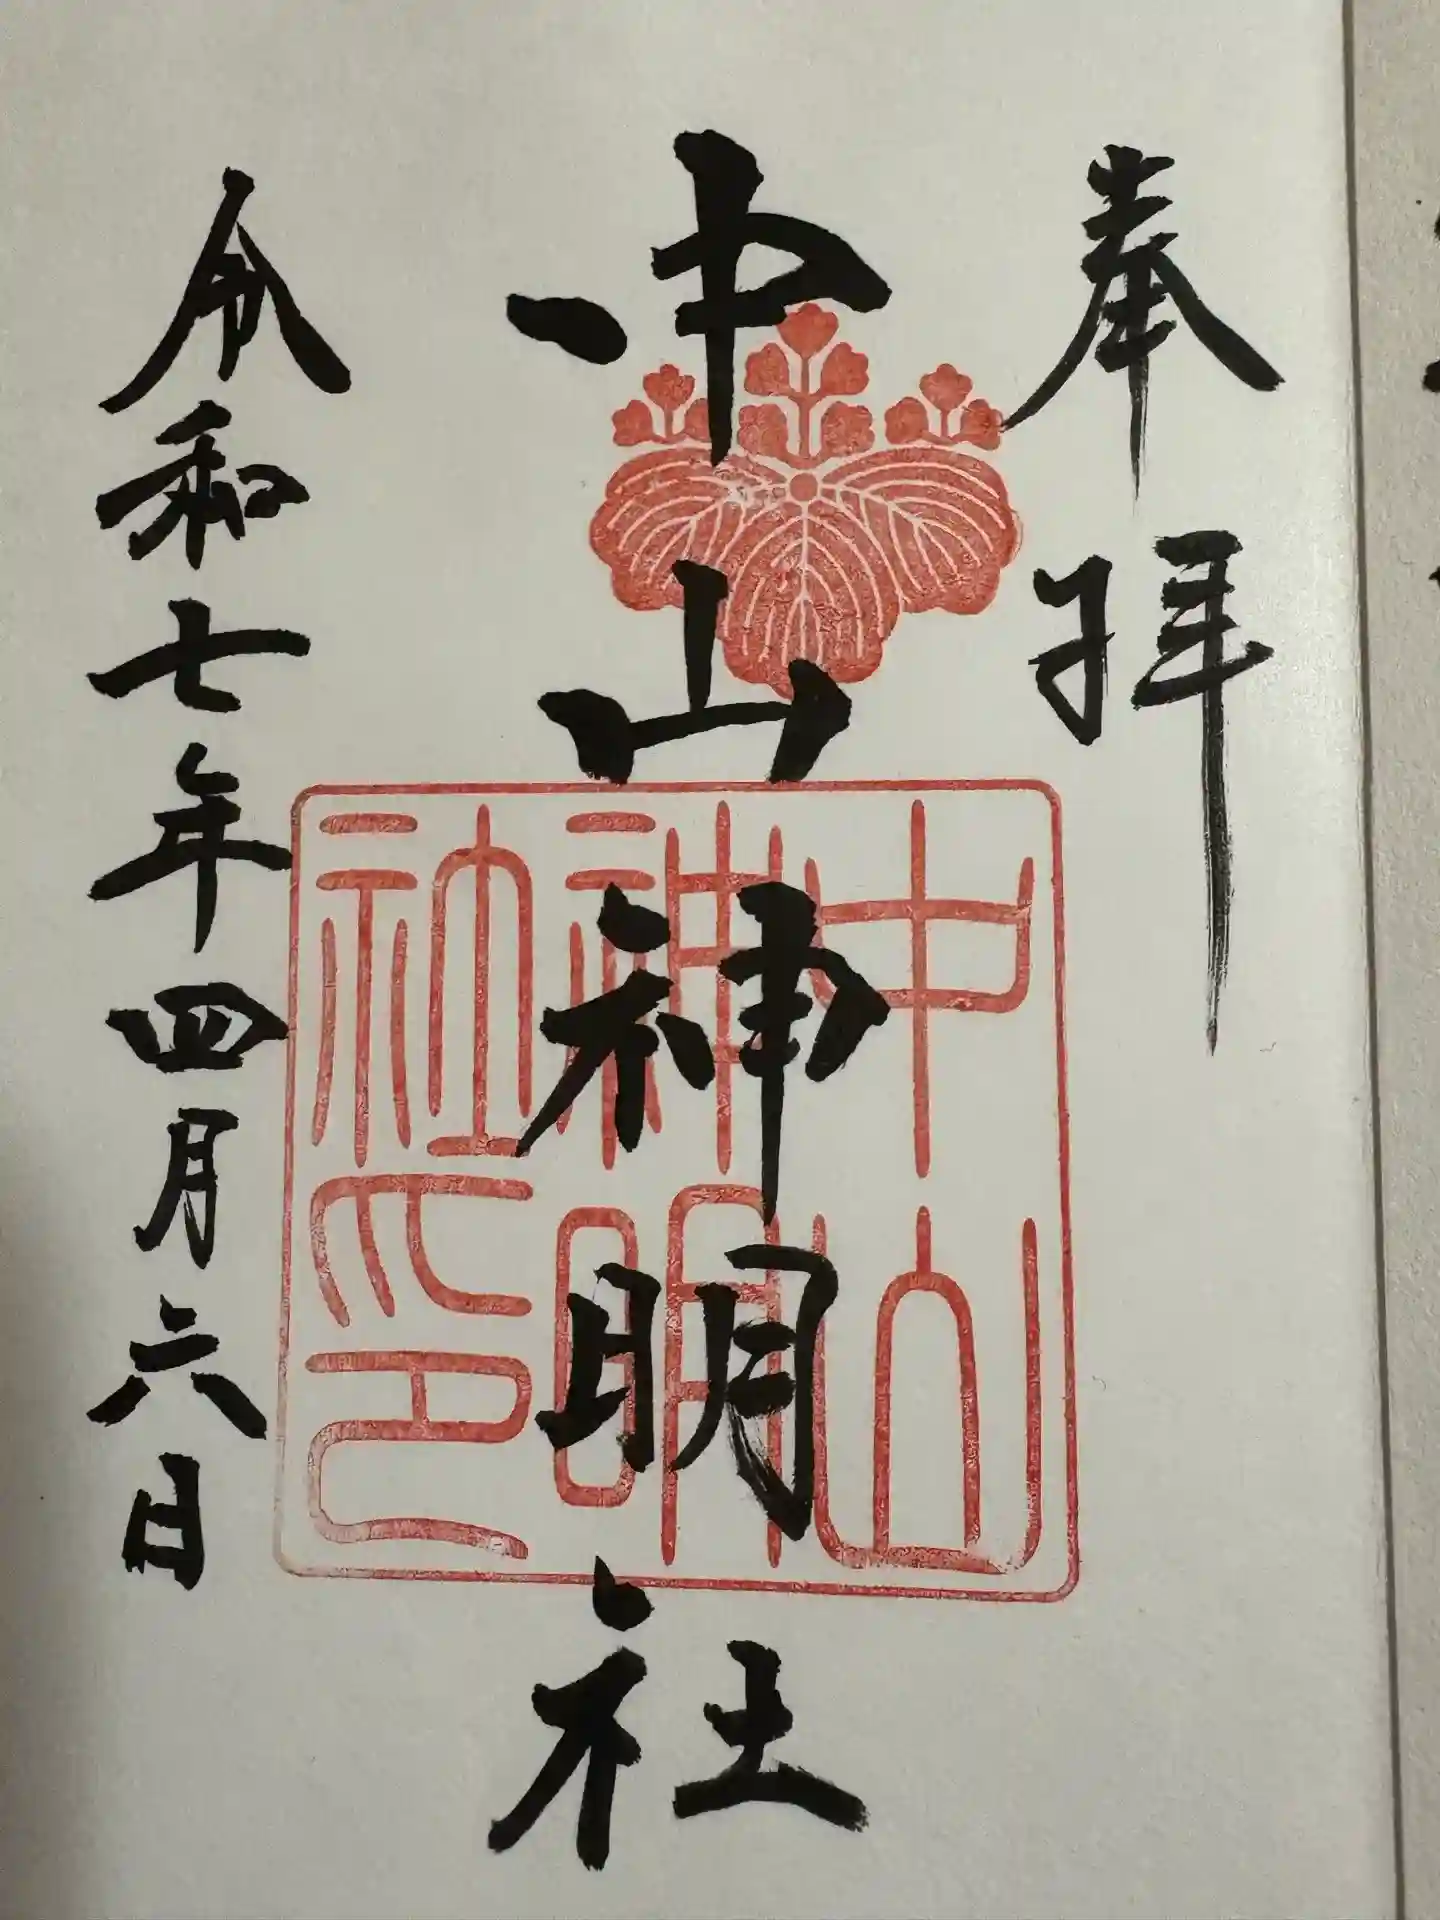 奉拝
中山神明社
中山
神明
社之印
令和七年四月六日